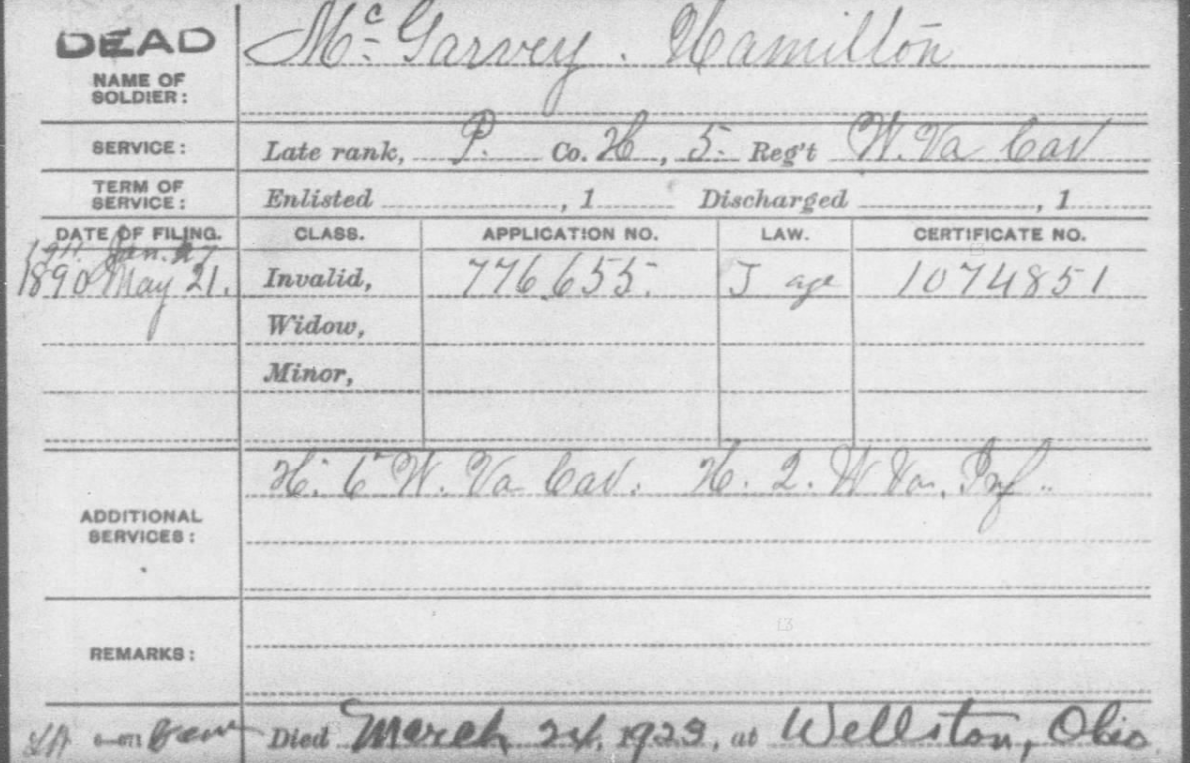 DEAD
Mc Garvey. Hamilton
NAME OF
SOLDIER:
SERVICE: Late rank, P. Co. H, 5. Reg't W. Va Cav
TERM OF
SERVICE: Enlisted , 1 Discharged , 1
DATE OF FILING. CLASS. APPLICATION NO. LAW. CERTIFICATE NO.
Jan. 27
1890 May 21. Invalid, 776.655. J age 1074851
Widow,
Minor,
H. 6 W. Va Cav. H. 2. W Va. Inf.
ADDITIONAL
SERVICES:
13
REMARKS:
Died March 24, 1923, at Wellston, Ohio